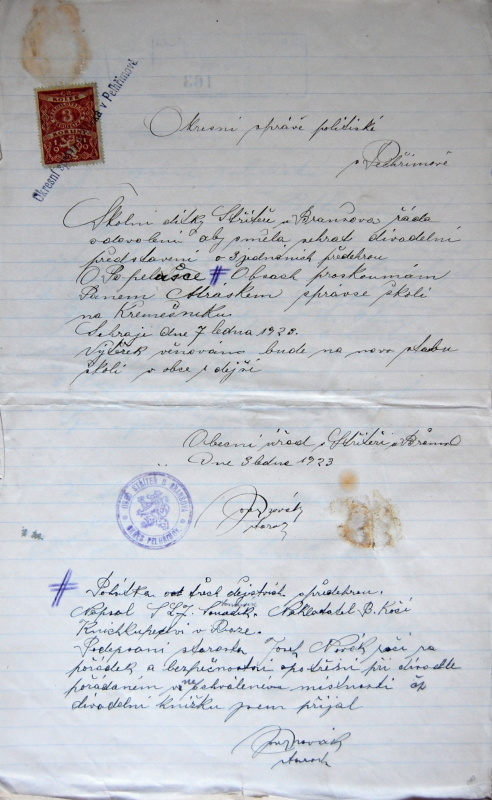 KOLEK
3
KORUNY
Okresní správa v Pelhřimově
Okresní správě politické
v Pelhřimově
Školní dítky Střítěře u Branšova žáda
odovolení aby směla sehrat divadelní
představení o 3 jednáních předehrou
O Popelušce # Obsach proskoumám
Panem Stráskem správce školi
na Křemešníku.
Sehraje dne 7 ledna 1923.
Výtěžek věnováno bude na novo stabu
školi v obce
Obecní úřad Střítěři u Branšo
Dne 3 ledna 1923
Jos Novák
starost
OBEC STŘÍTEŽ U BRANŠOVA
OKRES PELHŘIMOV
# Pohádka vot třech dejstvích předehrou.
Napsal Nakladatel B. Kočí
Knichkupectví v Praze.
Podepsaní starosta Josef Novák ručí za
pořádek a bezpečnostní opatření při divadle
pořádaném v místnosti čp
divadelní knížku jsem přijal
Jos Novák
starosta